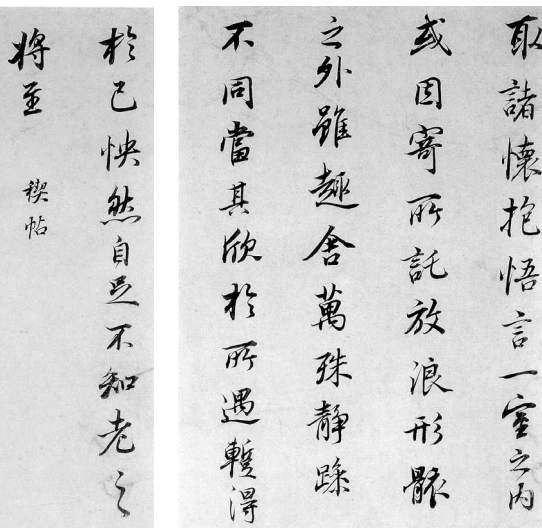 取諸懷抱悟言一室之內
或因寄所託放浪形骸
之外雖趣舍萬殊靜躁
不同當其欣於所遇暫得
於己怏然自足不知老之
將至
禊帖